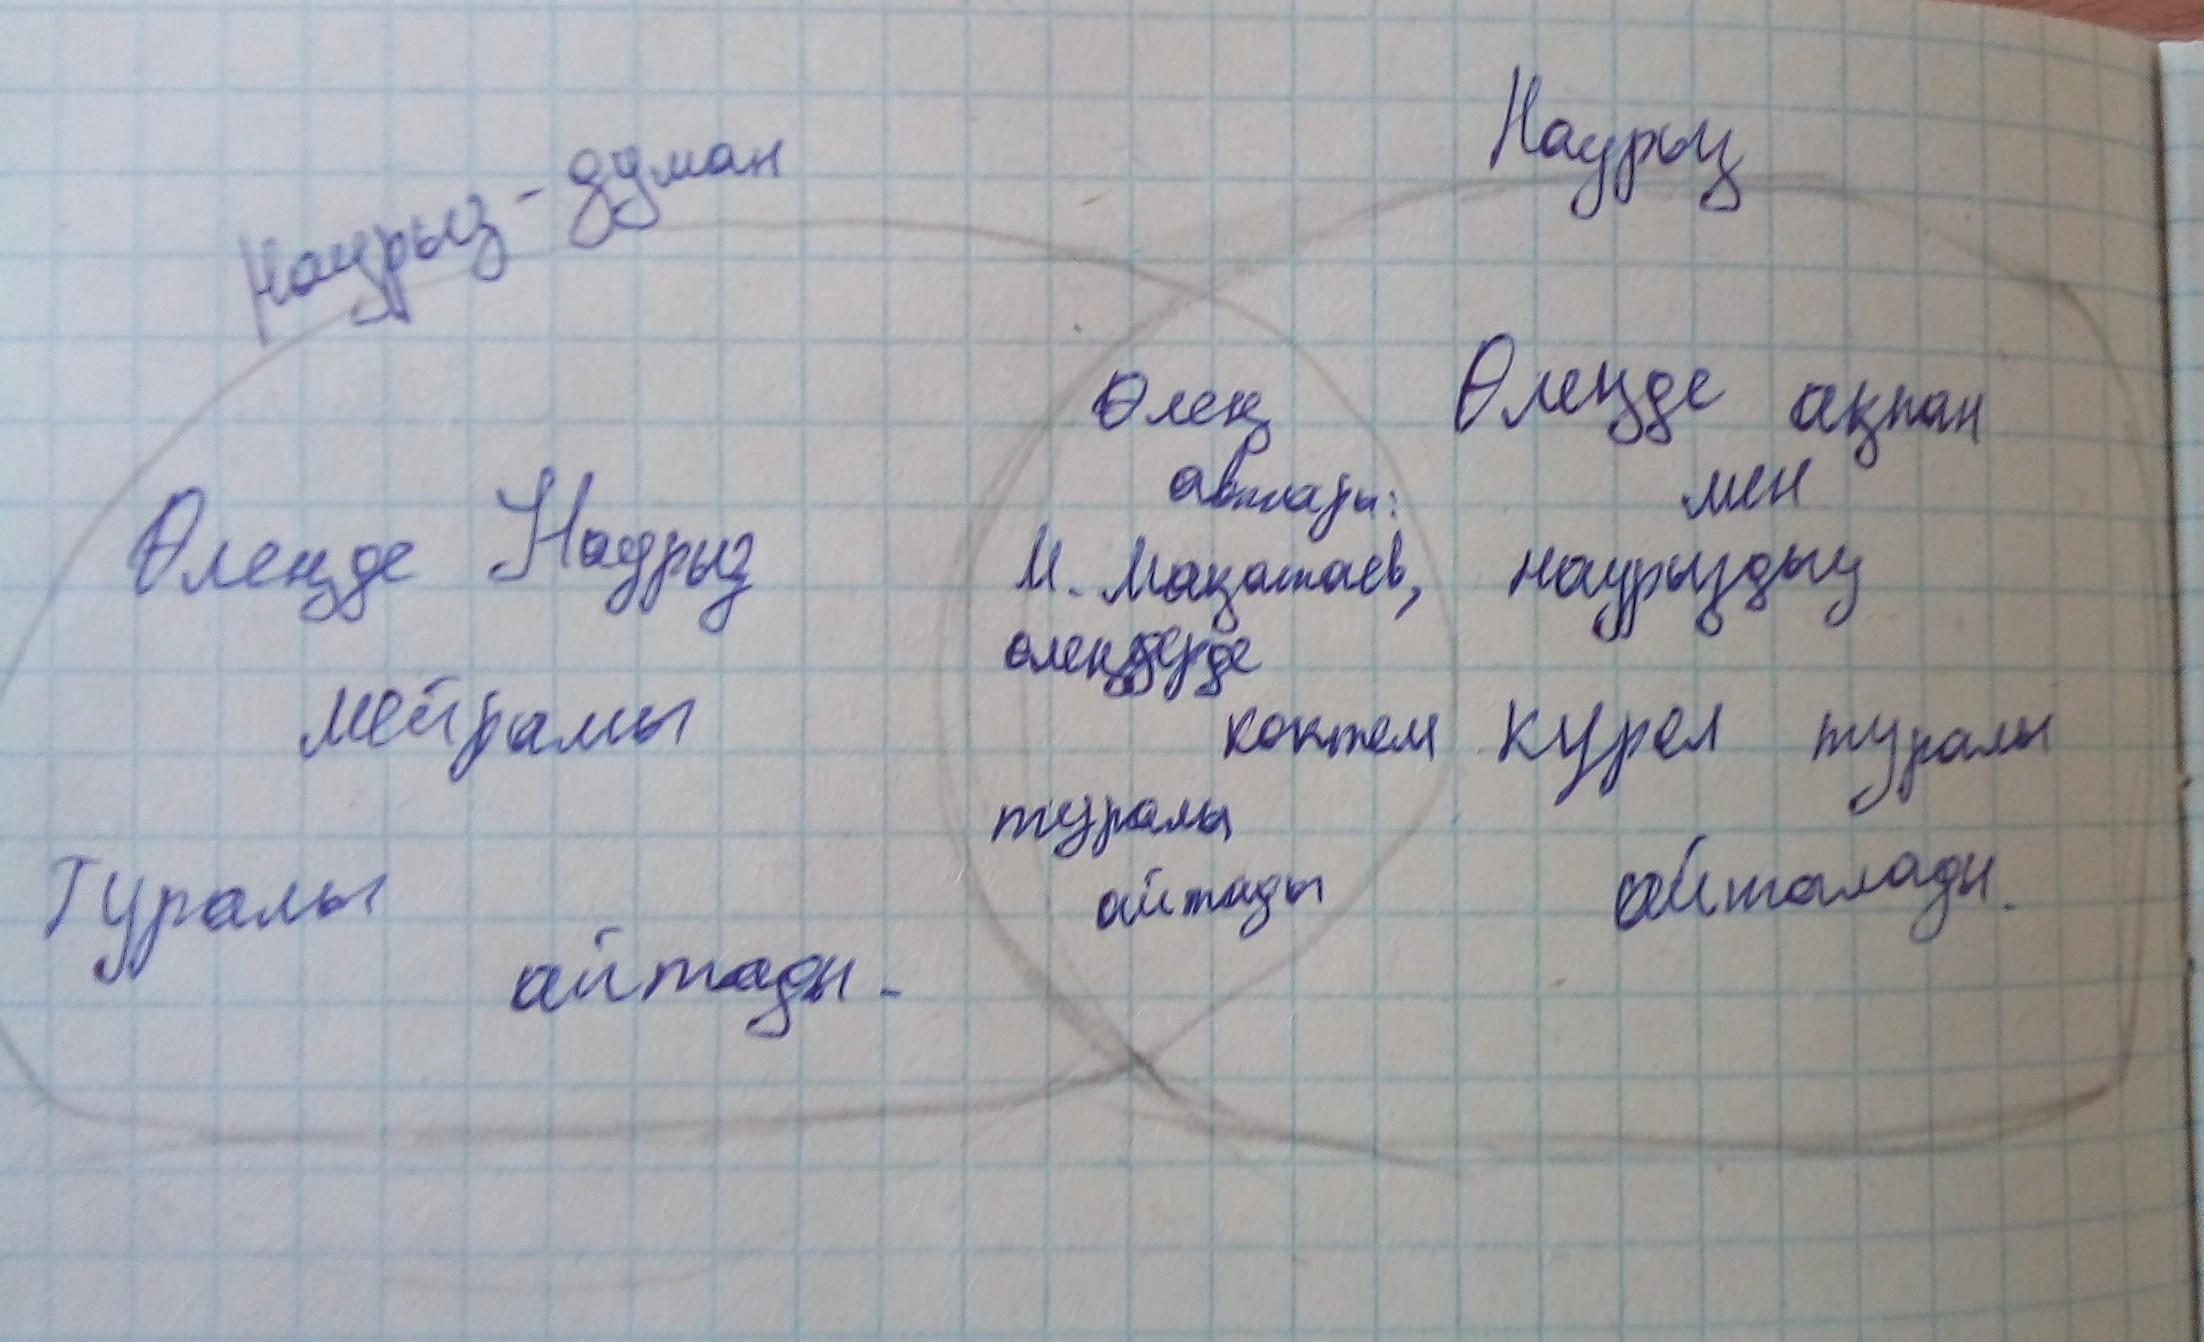 Наурыз-думан
Өлеңде Наурыз
мейрамы
Туралы
айтады.
Өлең
авторы:
М. Мақатаев,
өлеңдерде
көктем
туралы
айтады
Наурыз
Өлеңде ақпан
мен
наурыздың
күрел туралы
айталады.